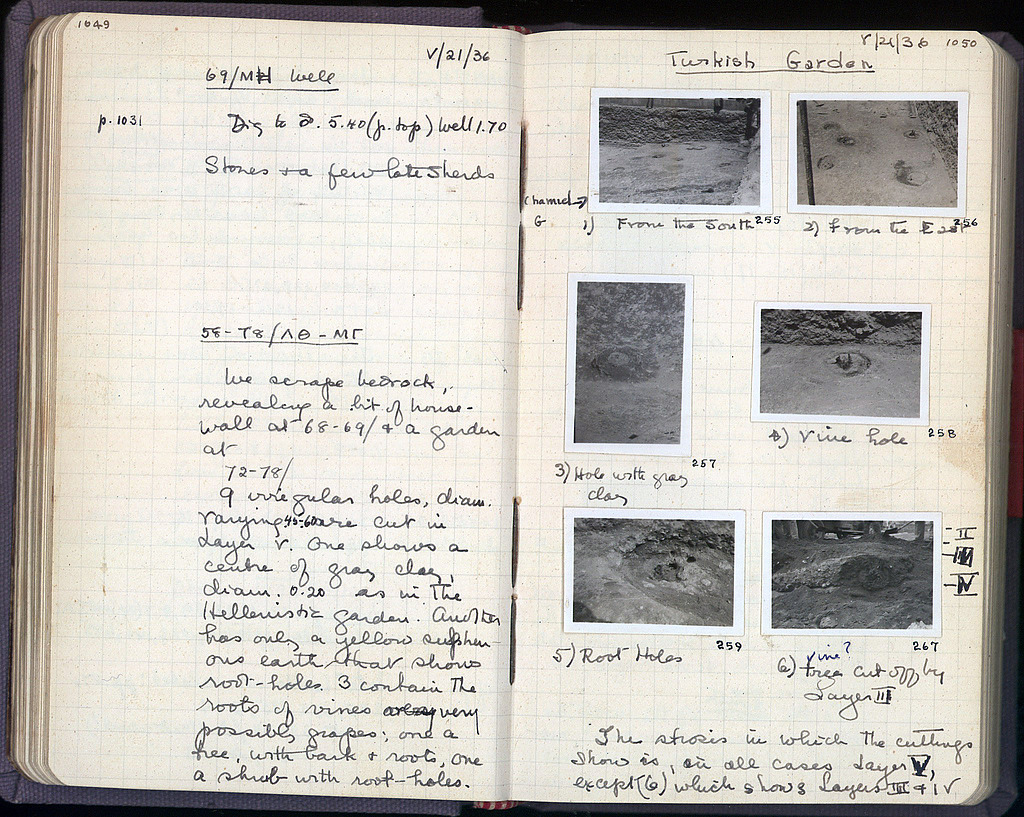 1049
V/21/36
69/MH Well
p. 1031
Dig to 5.40 (p. top) Well 1.70
Stones + a few late sherds
58-78/ΛΘ-ΜΓ
We scrape bedrock,
revealing a bit of house-
wall at 68-69/ + a garden
at
72-78/
9 irregular holes, diam.
varying 45-60 are cut in
Layer V. One shows a
centre of gray clay,
diam. 0.20 as in the
Hellenistic garden. Another
has only a yellow sulphur-
ous earth that shows
root-holes. 3 contain the
roots of vines very
possibly grapes; one a
tree, with bark + roots, one
a shrub with root-holes.
V/21/36 1050
Turkish Garden
G
1) From the South 255
2) From the East 256
3) Hole with gray
clay
257
4) Vine hole 258
5) Root Holes 259
II
III
V
267
vine?
6) tree cut off by
Layer III
The strosis in which the cuttings
show is, in all cases Layer V,
except (6) which shows Layers III + IV